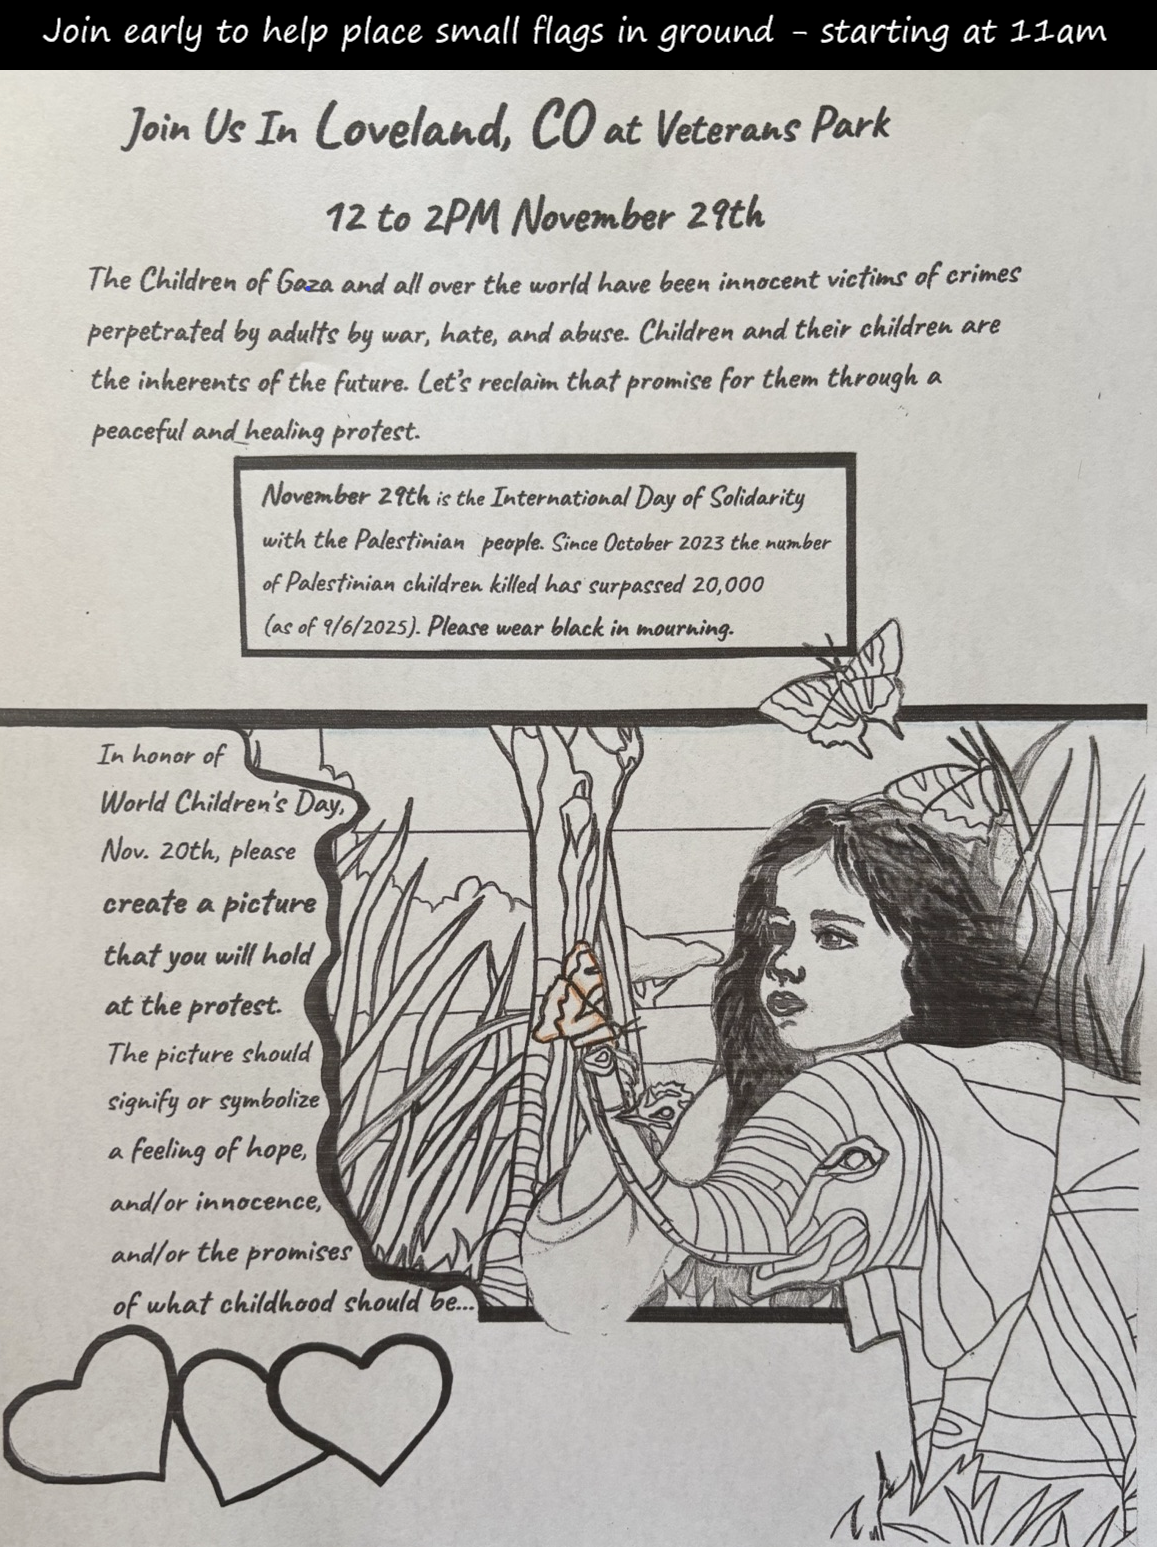 Join early to help place small flags in ground - starting at 11am
Join Us In Loveland, CO at Veterans Park
12 to 2PM November 29th
The Children of Gaza and all over the world have been innocent victims of crimes
perpetrated by adults by war, hate, and abuse. Children and their children are
the inherents of the future. Let's reclaim that promise for them through a
peaceful and healing protest.
November 29th is the International Day of Solidarity
with the Palestinian people. Since October 2023 the number
of Palestinian children killed has surpassed 20,000
(as of 9/6/2025). Please wear black in mourning.
In honor of
World Children's Day,
Nov. 20th, please
create a picture
that you will hold
at the protest.
The picture should
signify or symbolize
a feeling of hope,
and/or innocence,
and/or the promises
of what childhood should be...